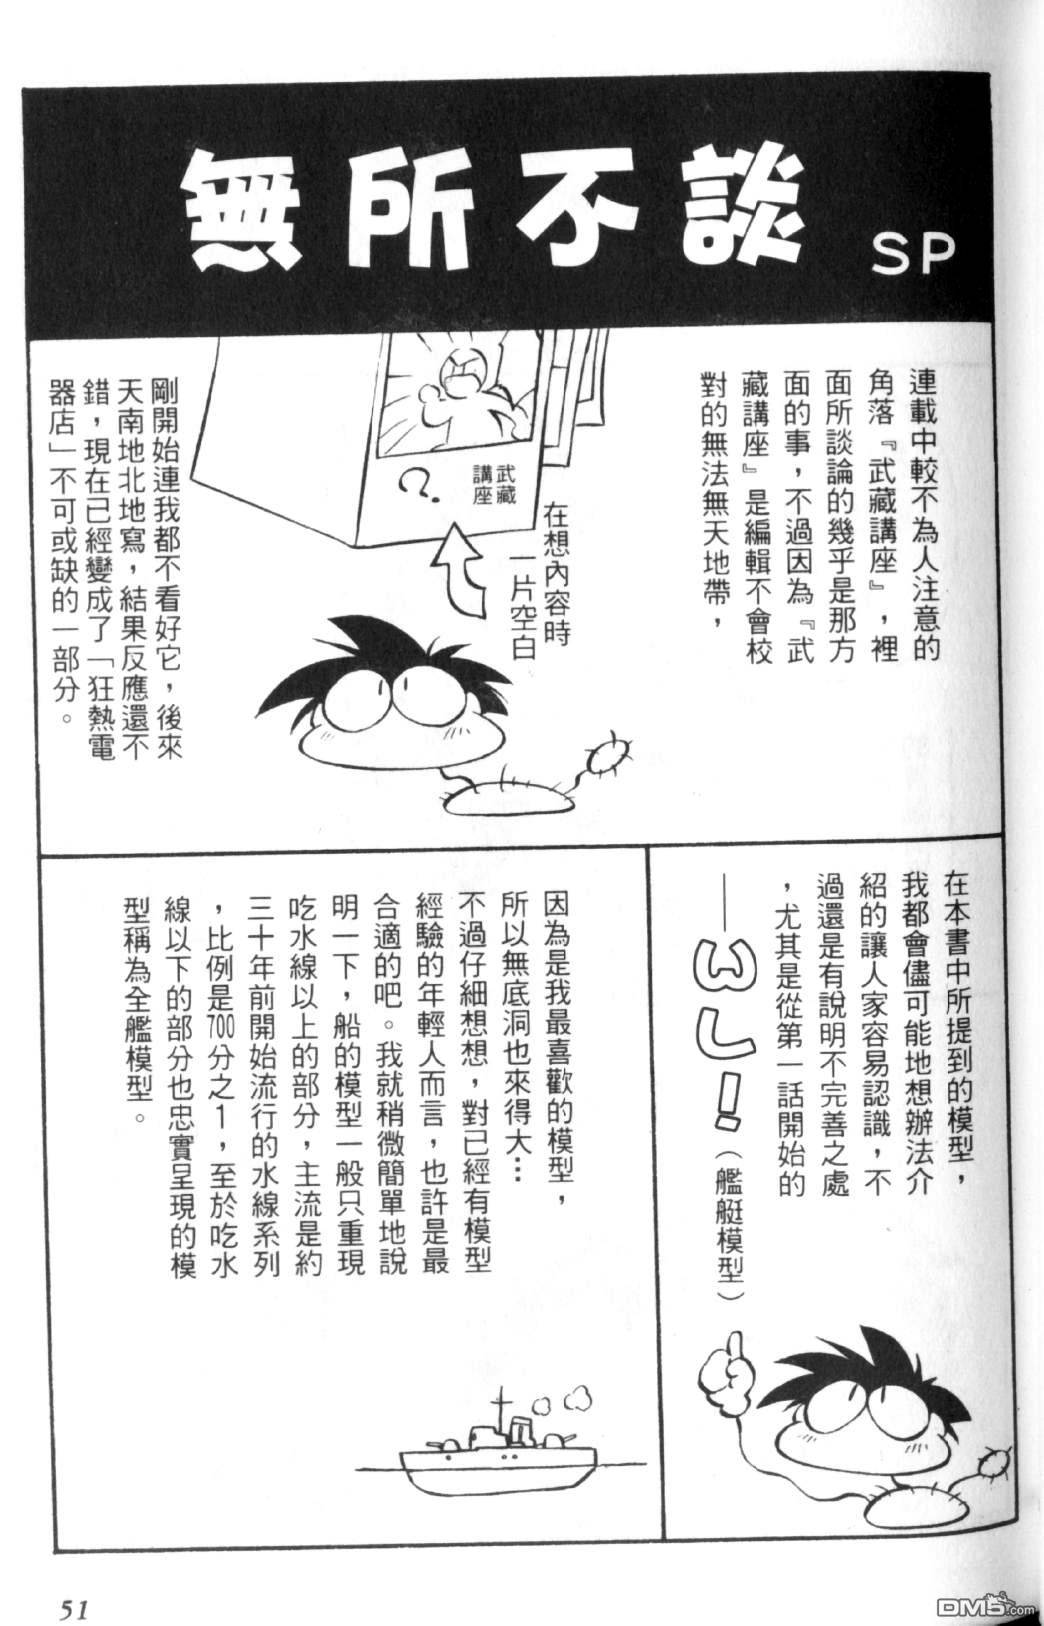 無所不談 SP
連載中較不為人注意的
角落『武藏講座』，裡
面所談論的幾乎是那方
面的事，不過因為『武
藏講座』是編輯不會校
對的無法無天地帶，
武藏
講座
?
在想內容時
一片空白
剛開始連我都不看好它，後來
天南地北地寫，結果反應還不
錯，現在已經變成了「狂熱電
器店」不可或缺的一部分。
在本書中所提到的模型，
我都會儘可能地想辦法介
紹的讓人家容易認識，不
過還是有說明不完善之處
，尤其是從第一話開始的
——WL！（艦艇模型）
因為是我最喜歡的模型，
所以無底洞也來得大…
不過仔細想想，對已經有模型
經驗的年輕人而言，也許是最
合適的吧。我就稍微簡單地說
明一下，船的模型一般只重現
吃水線以上的部分，主流是約
三十年前開始流行的水線系列
，比例是700分之1，至於吃水
線以下的部分也忠實呈現的模
型稱為全艦模型。
51
DM5.com